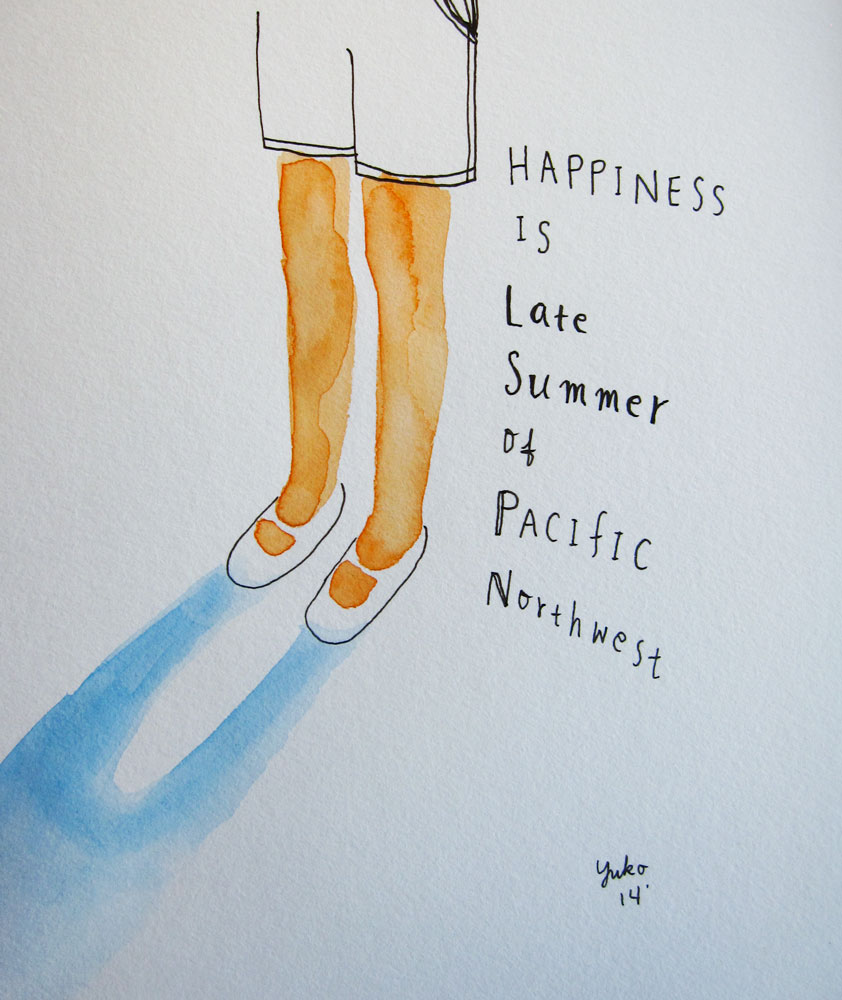 HAPPINESS
IS
Late
Summer
of
PACIfIC
Northwest
yuko
14'